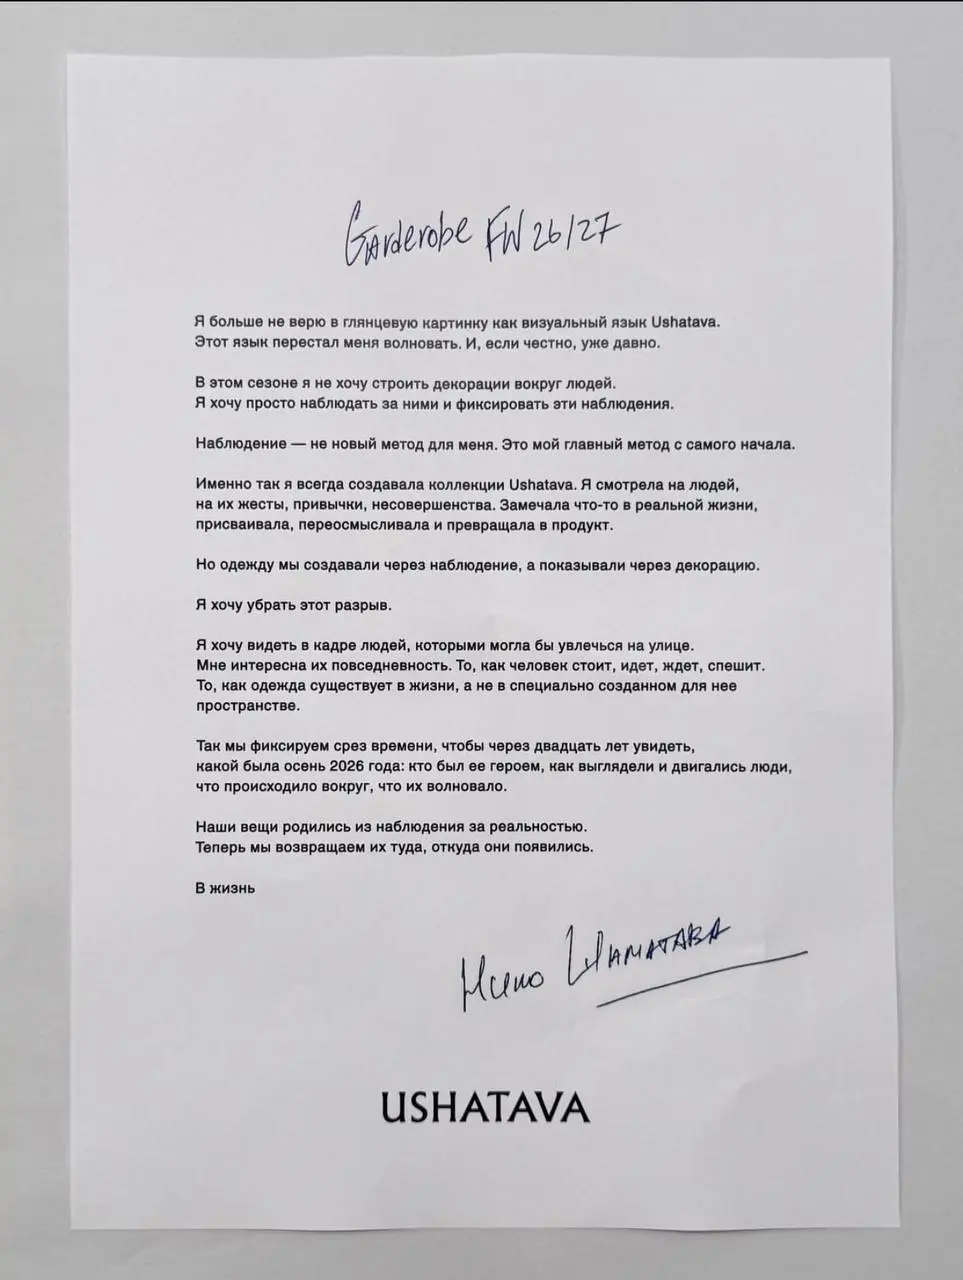 Garderobe FW 26/27
Я больше не верю в глянцевую картинку как визуальный язык Ushatava.
Этот язык перестал меня волновать. И, если честно, уже давно.
В этом сезоне я не хочу строить декорации вокруг людей.
Я хочу просто наблюдать за ними и фиксировать эти наблюдения.
Наблюдение — не новый метод для меня. Это мой главный метод с самого начала.
Именно так я всегда создавала коллекции Ushatava. Я смотрела на людей,
на их жесты, привычки, несовершенства. Замечала что-то в реальной жизни,
присваивала, переосмысливала и превращала в продукт.
Но одежду мы создавали через наблюдение, а показывали через декорацию.
Я хочу убрать этот разрыв.
Я хочу видеть в кадре людей, которыми могла бы увлечься на улице.
Мне интересна их повседневность. То, как человек стоит, идет, ждет, спешит.
То, как одежда существует в жизни, а не в специально созданном для нее
пространстве.
Так мы фиксируем срез времени, чтобы через двадцать лет увидеть,
какой была осень 2026 года: кто был ее героем, как выглядели и двигались люди,
что происходило вокруг, что их волновало.
Наши вещи родились из наблюдения за реальностью.
Теперь мы возвращаем их туда, откуда они появились.
В жизнь
Нино Шаматава
USHATAVA